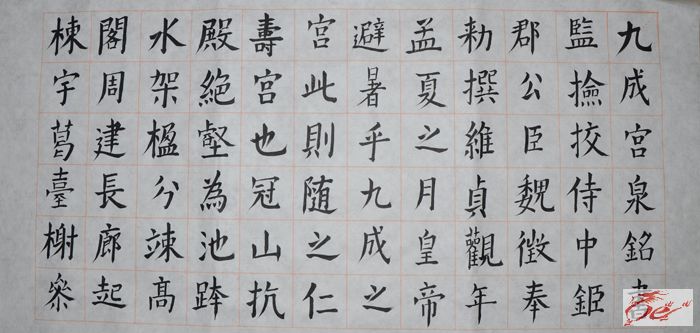 九成宮泉銘
監撿挍侍中鉅
郡公臣魏徵奉
勑撰維貞觀年
孟夏之月皇帝
避暑乎九成之
宮此則随之仁
壽宮也冠山抗
殿絶壑為池跨
水架楹分竦高
閣周建長廊起
棟宇葛臺榭叅